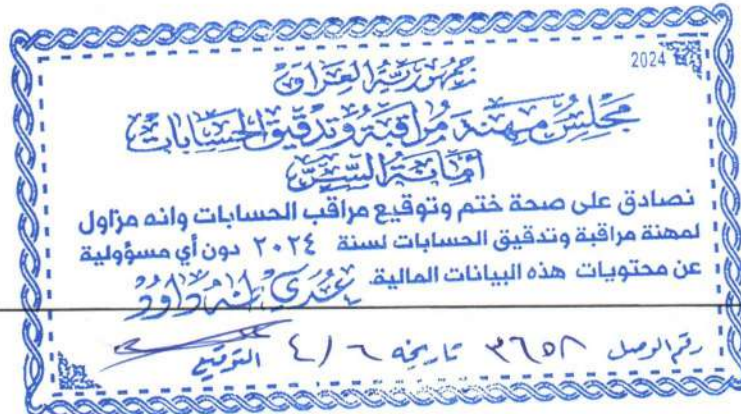 2024
جمهورية العراق
مجلس مهنة مراقبة وتدقيق الحسابات
أمانة السر
نصادق على صحة ختم وتوقيع مراقب الحسابات وانه مزاول
لمهنة مراقبة وتدقيق الحسابات لسنة ٢٠٢٤ دون أي مسؤولية
عن محتويات هذه البيانات المالية.
عدي داود
رقم الوصل ٣٦٥٨ تاريخه ٦ / ٤ التوقيع